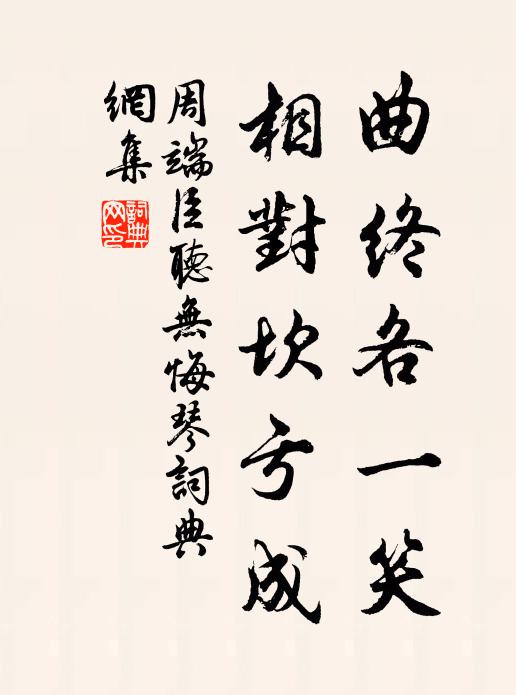 曲終各一笑
相對坎亏成
周端臣聽無悔琴詞典
網集
詞典網印